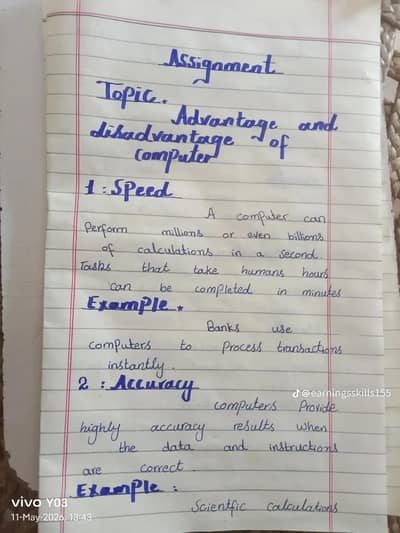 Assignment
Topic.
Advantage and
disadvantage of
computer
1 : Speed
A computer can
perform millions or even billions
of calculations in a second.
Tasks that take humans hours
can be completed in minutes
Example.
Banks use
computers to process transactions
instantly.
2 : Accuracy
computers Provide
highly accuracy results when
the data and instructions
are correct.
Example :
Scientfic calculations
@earningsskills155
vivo Y03
11-May-2026, 13:43